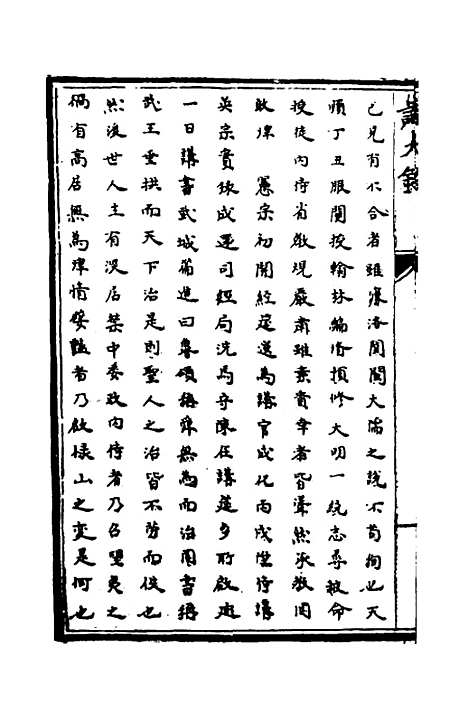 己見有不合者雖濂洛関閩大儒之説不苟徇也天
順丁丑服闋授翰林編修預修大明一統志尋被命
授徒内侍省教規嚴肅雖素貴幸者皆聳然承教因
敢肆　憲宗初開經筵選為講官成化丙戌陞侍講
英宗實錄成遷司經局洗馬守陳在講筵多所啟迪
一日講書武城篇進曰舜頌稱舜無為而治周書稱
武王垂拱而天下治是則聖人之治皆不勞而佚也
然後世人主有深居禁中委政内侍者乃召望夷之
禍有高居無為肆情嬖艶者乃啟祿山之変是何也